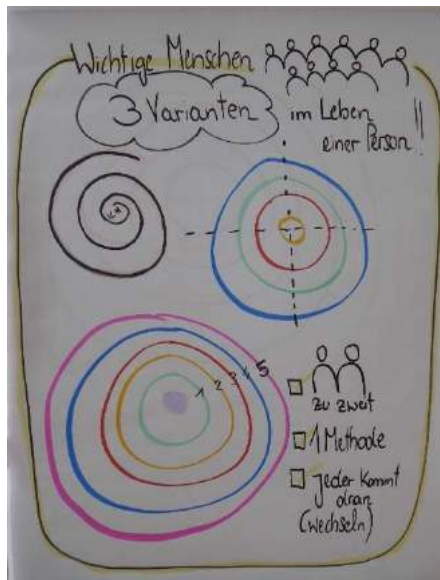 Wichtige Menschen
3 Varianten
im Leben
einer Person!!
1 2 3 4 5
zu zweit
1 Methode
jeder kommt
dran
(wechseln)